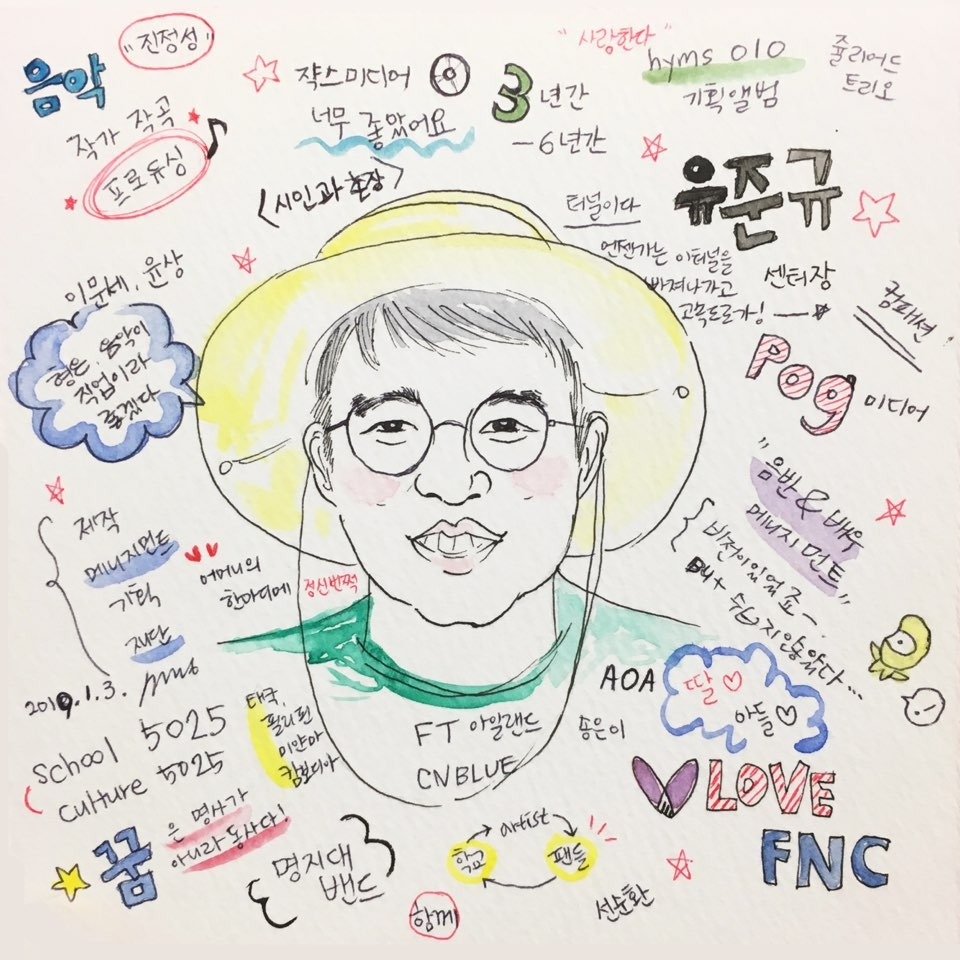 음악
"진정성"
작가 작곡
프로듀싱
쟉스미디어
너무 좋았어요
<시인과 촌장>
3년간
-6년간
"사랑한다"
hyms 010
기획앨범
쥴리어드
트리오
유준규
센터장
터널이다
언젠가는 이터널을
빠져나가고
고속도로가!
컴패션!
Pog 미디어
이문세, 윤상
형은, 음악이
직업이라
좋겠다
"음반 &
매니지먼트"
비전이있었죠~.
But 쉽지않았다...
제작
메니지먼트
기획
재단
어머니의
한마디에 정신번쩍
2019.1.3.
School 5025
Culture 5025
태국,
필리핀
미얀마
캄보디아
FT 아일랜드
CNBLUE
AOA
송은이
딸♡
아들♡
LOVE
FNC
꿈은 명사가
아니라 동사다!
명지대
밴드
학교 → artist → 팬들
선순환
함께